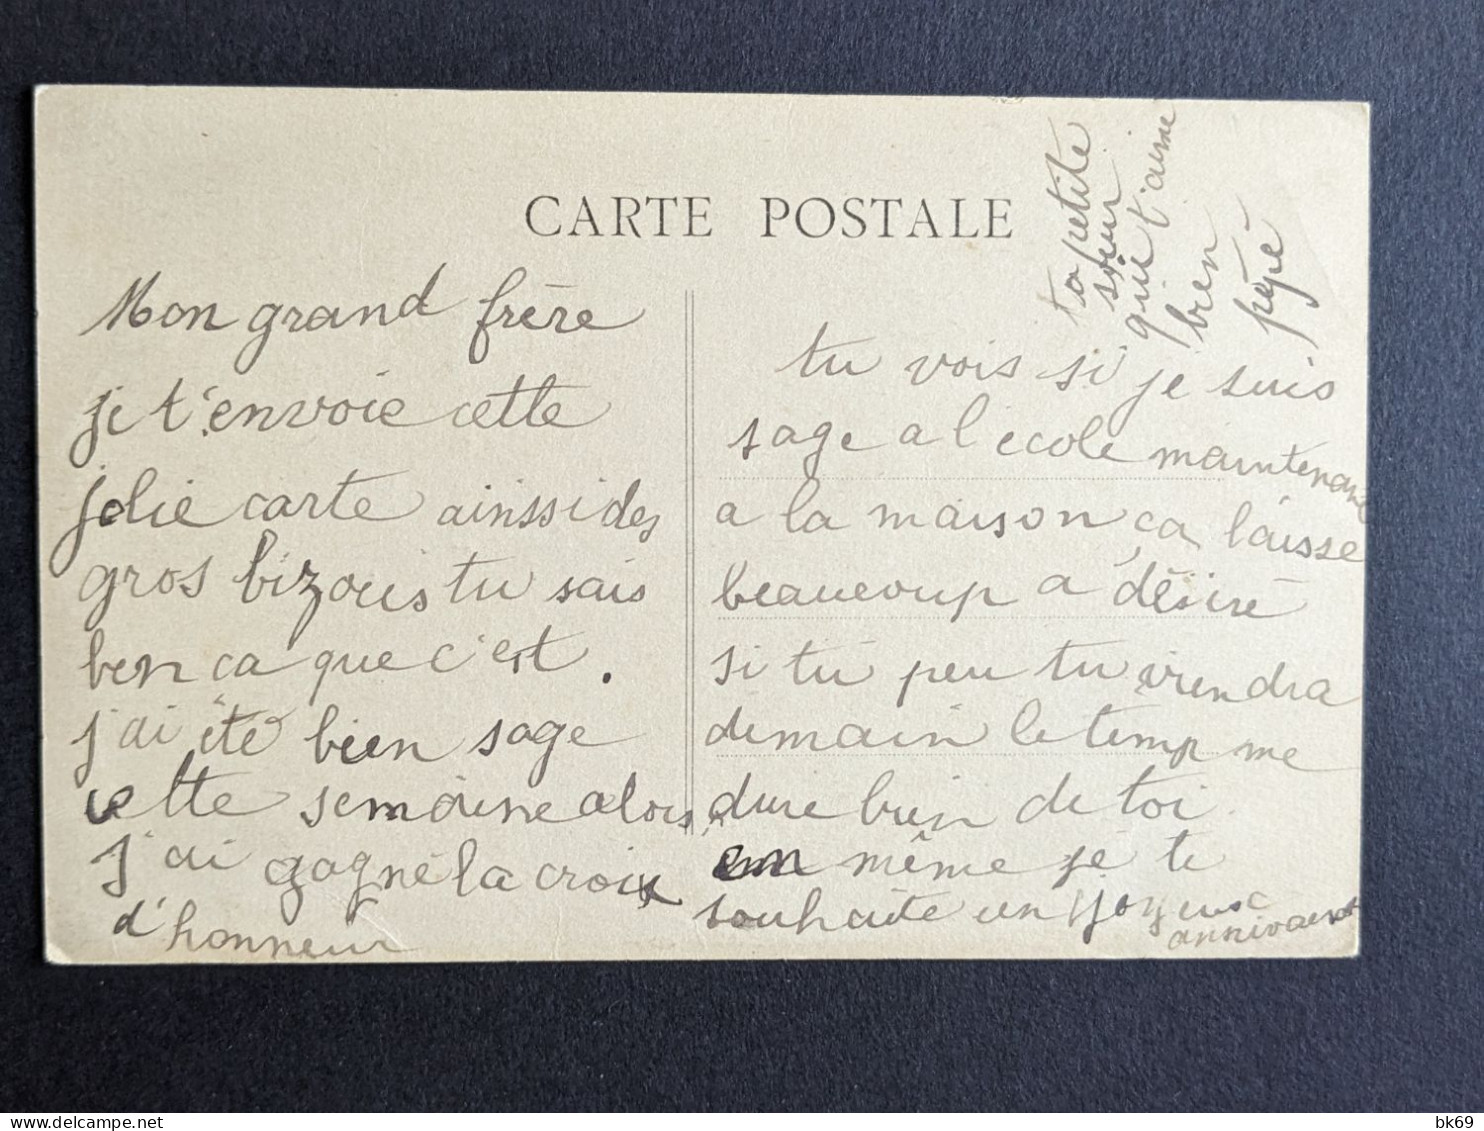 CARTE POSTALE
Mon grand frère
je t'envoie cette
jolie carte ainssi des
gros bizous tu sais
ben ca que c'est.
j'ai été bien sage
cette semaine alors
j'ai gagné la croix
d'honneur
tu vois si je suis
sage a l'école maintenant
a la maison ça laisse
beaucoup a désiré
si tu peu tu viendra
demain le temp me
dure bien de toi
em même je te
souhaite un joyeuse
anniversaire
ta petite
sœur
qui t'aime
bien
pépé
bk69